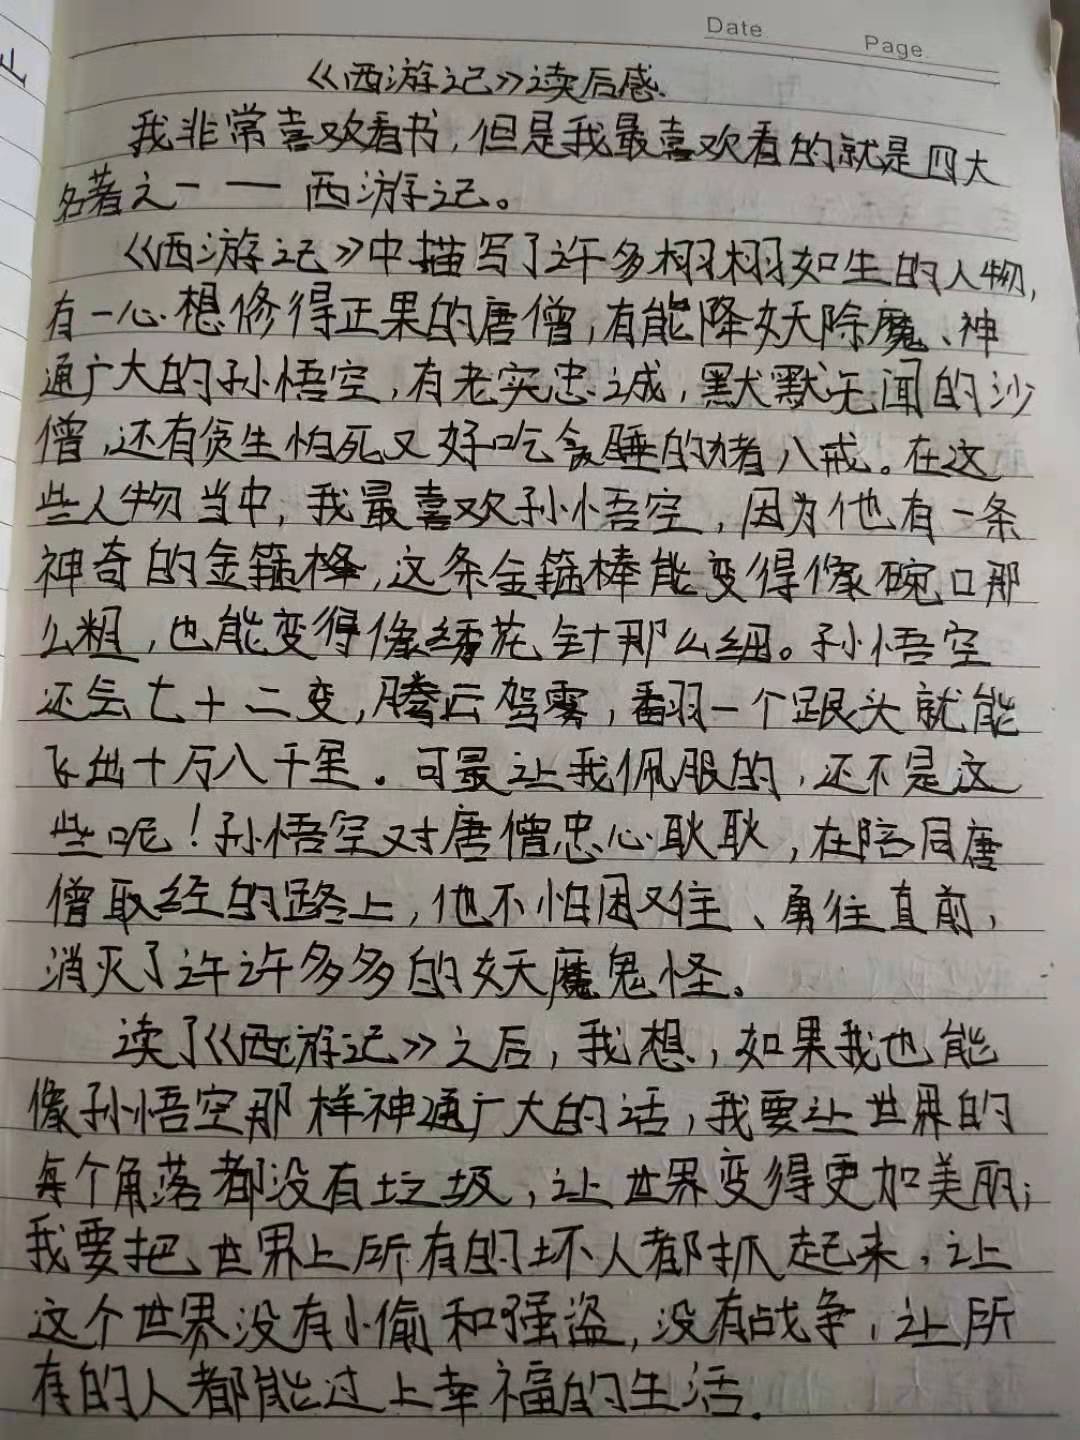 Date
Page
《西游记》读后感.
我非常喜欢看书,但是我最喜欢看的就是四大
名著之一——西游记。
《西游记》中描写了许多栩栩如生的人物,
有一心想修得正果的唐僧,有能降妖除魔、神
通广大的孙悟空,有老实忠诚,默默无闻的沙
僧,还有贪生怕死又好吃贪睡的猪八戒。在这
些人物当中,我最喜欢孙悟空,因为他有一条
神奇的金箍棒,这条金箍棒能变得像碗口那
么粗,也能变得像绣花针那么细。孙悟空
还会七十二变,腾云驾雾,翻一个跟头就能
飞出十万八千里。可最让我佩服的,还不是这
些呢!孙悟空对唐僧忠心耿耿,在陪同唐
僧取经的路上,他不怕困难、勇往直前,
消灭了许许多多的妖魔鬼怪。
读了《西游记》之后,我想,如果我也能
像孙悟空那样神通广大的话,我要让世界的
每个角落都没有垃圾,让世界变得更加美丽;
我要把世界上所有的坏人都抓起来,让
这个世界没有小偷和强盗,没有战争,让所
有的人都能过上幸福的生活.